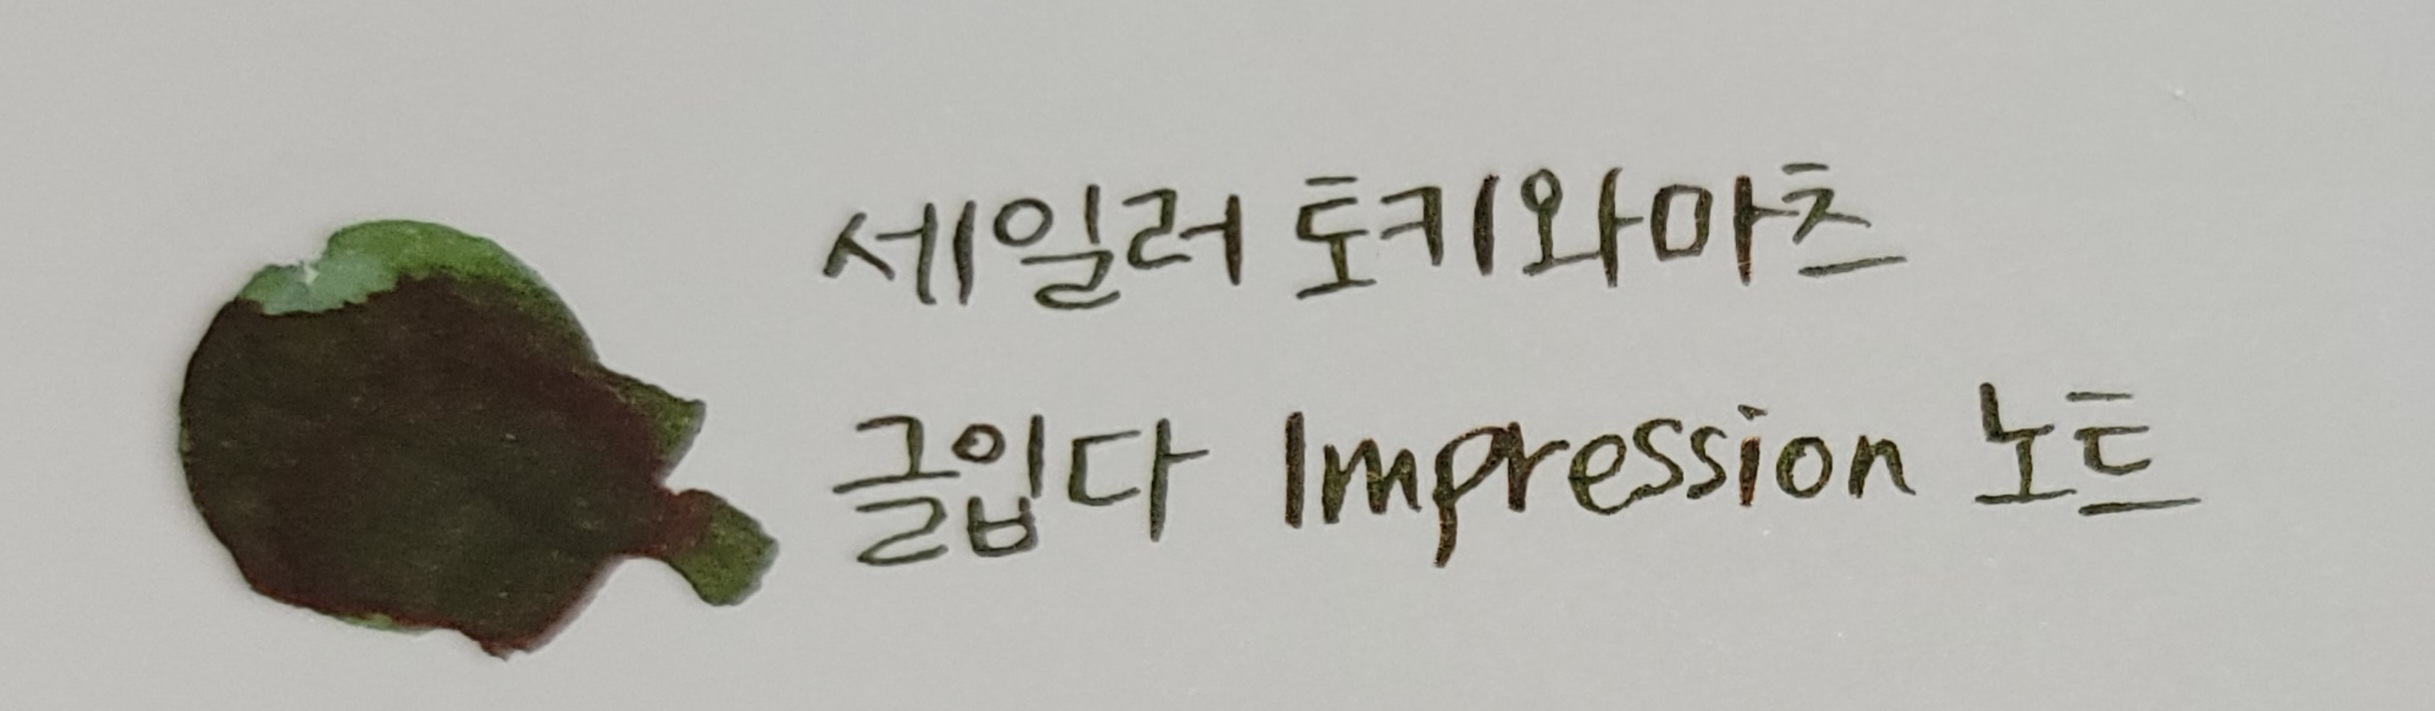 세일러 토키와마츠
글입다 Impression 노트